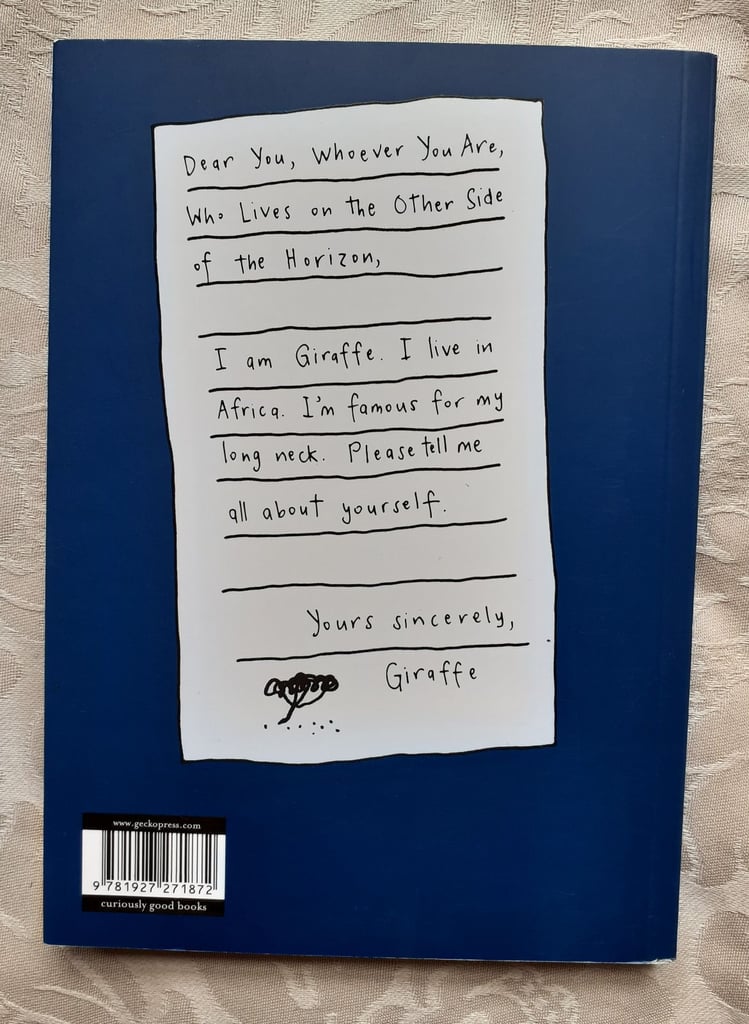 Dear You, Whoever You Are,
Who Lives on the Other Side
of the Horizon,
I am Giraffe. I live in
Africa. I'm famous for my
long neck. Please tell me
all about yourself.
Yours sincerely,
Giraffe
www.geckopress.com
9 781927 271872
curiously good books